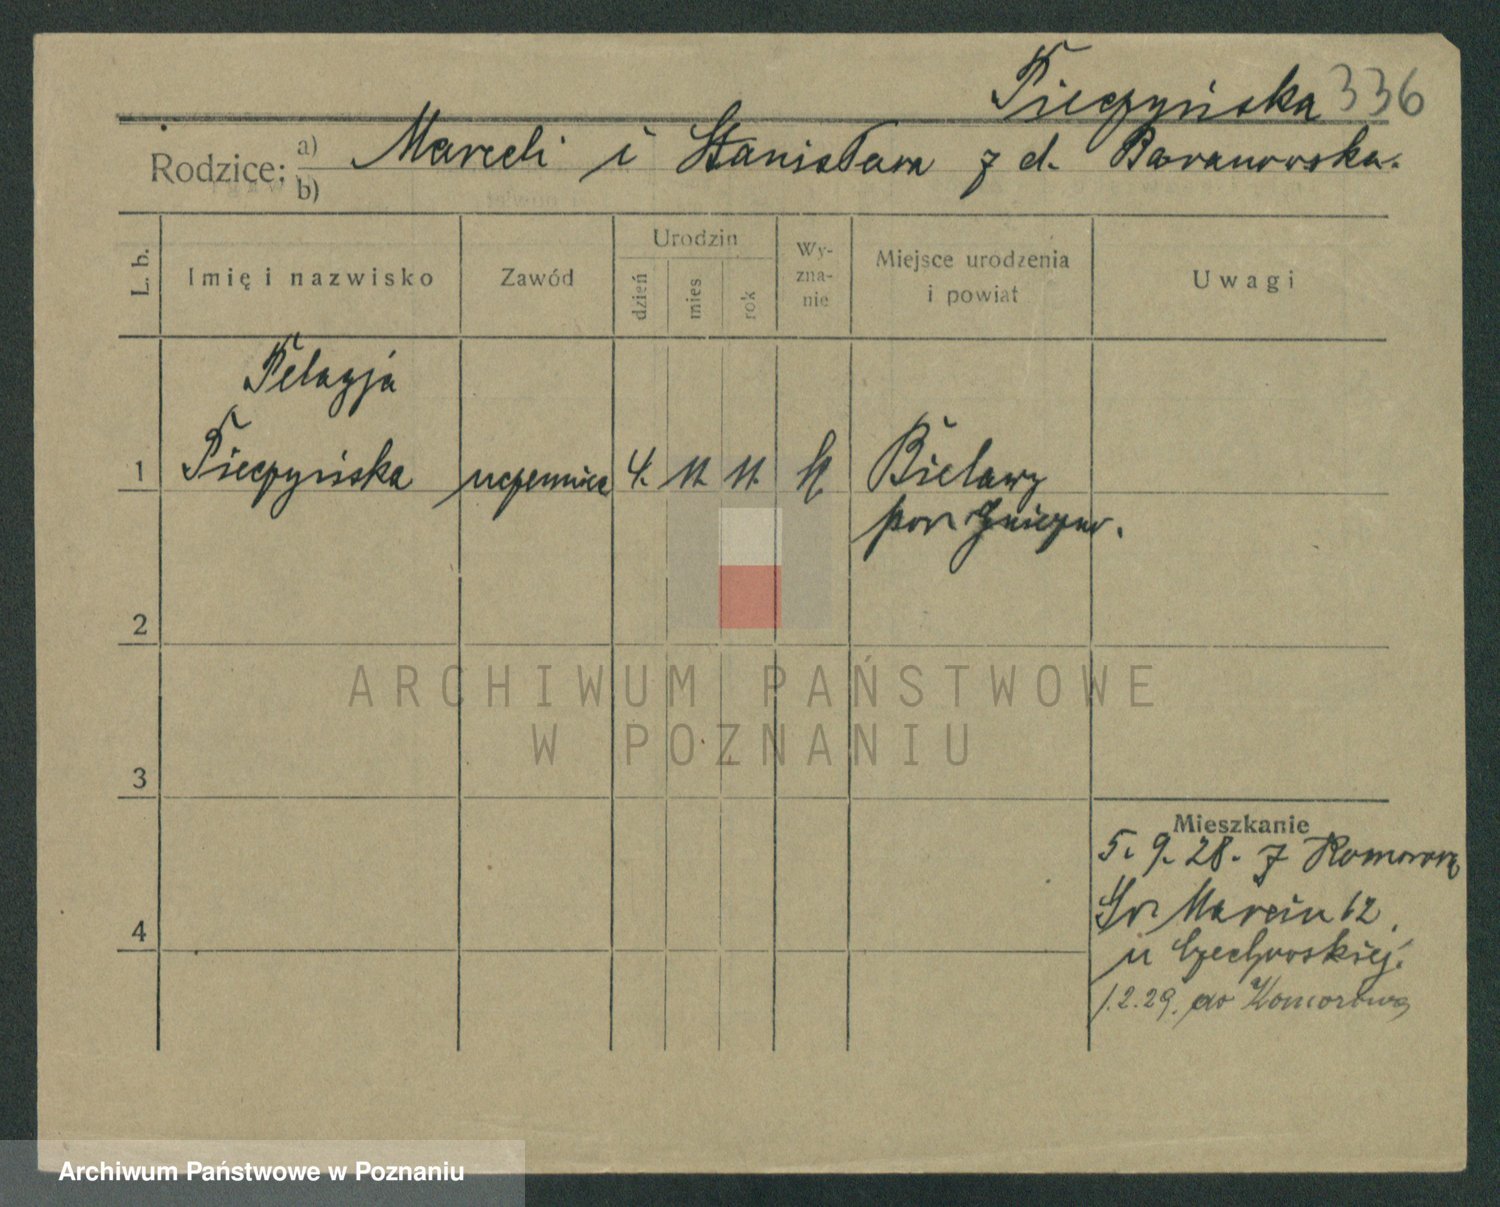 Pieczyńska 336
Rodzice: a) Marceli i Stanisława z d. Baranowska.
b)
L. b.
Imię i nazwisko
Zawód
Urodzin
dzień
mies
rok
Wy-
zna-
nie
Miejsce urodzenia
i powiat
Uwagi
Pelagja
1 Pieczyńska uczennica 4. 11. 11. Bielawy
pow Gniezno.
2
3
4
Mieszkanie
5. 9. 28. z Komorowa
Św Marcin 62.
u Czechowskiej.
1.2.29. do Komorowa
ARCHIWUM PAŃSTWOWE
W POZNANIU
Archiwum Państwowe w Poznaniu